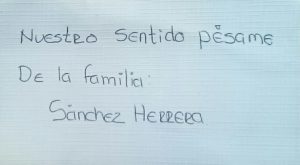 Nuestro sentido pésame
De la familia:
Sánchez Herrera